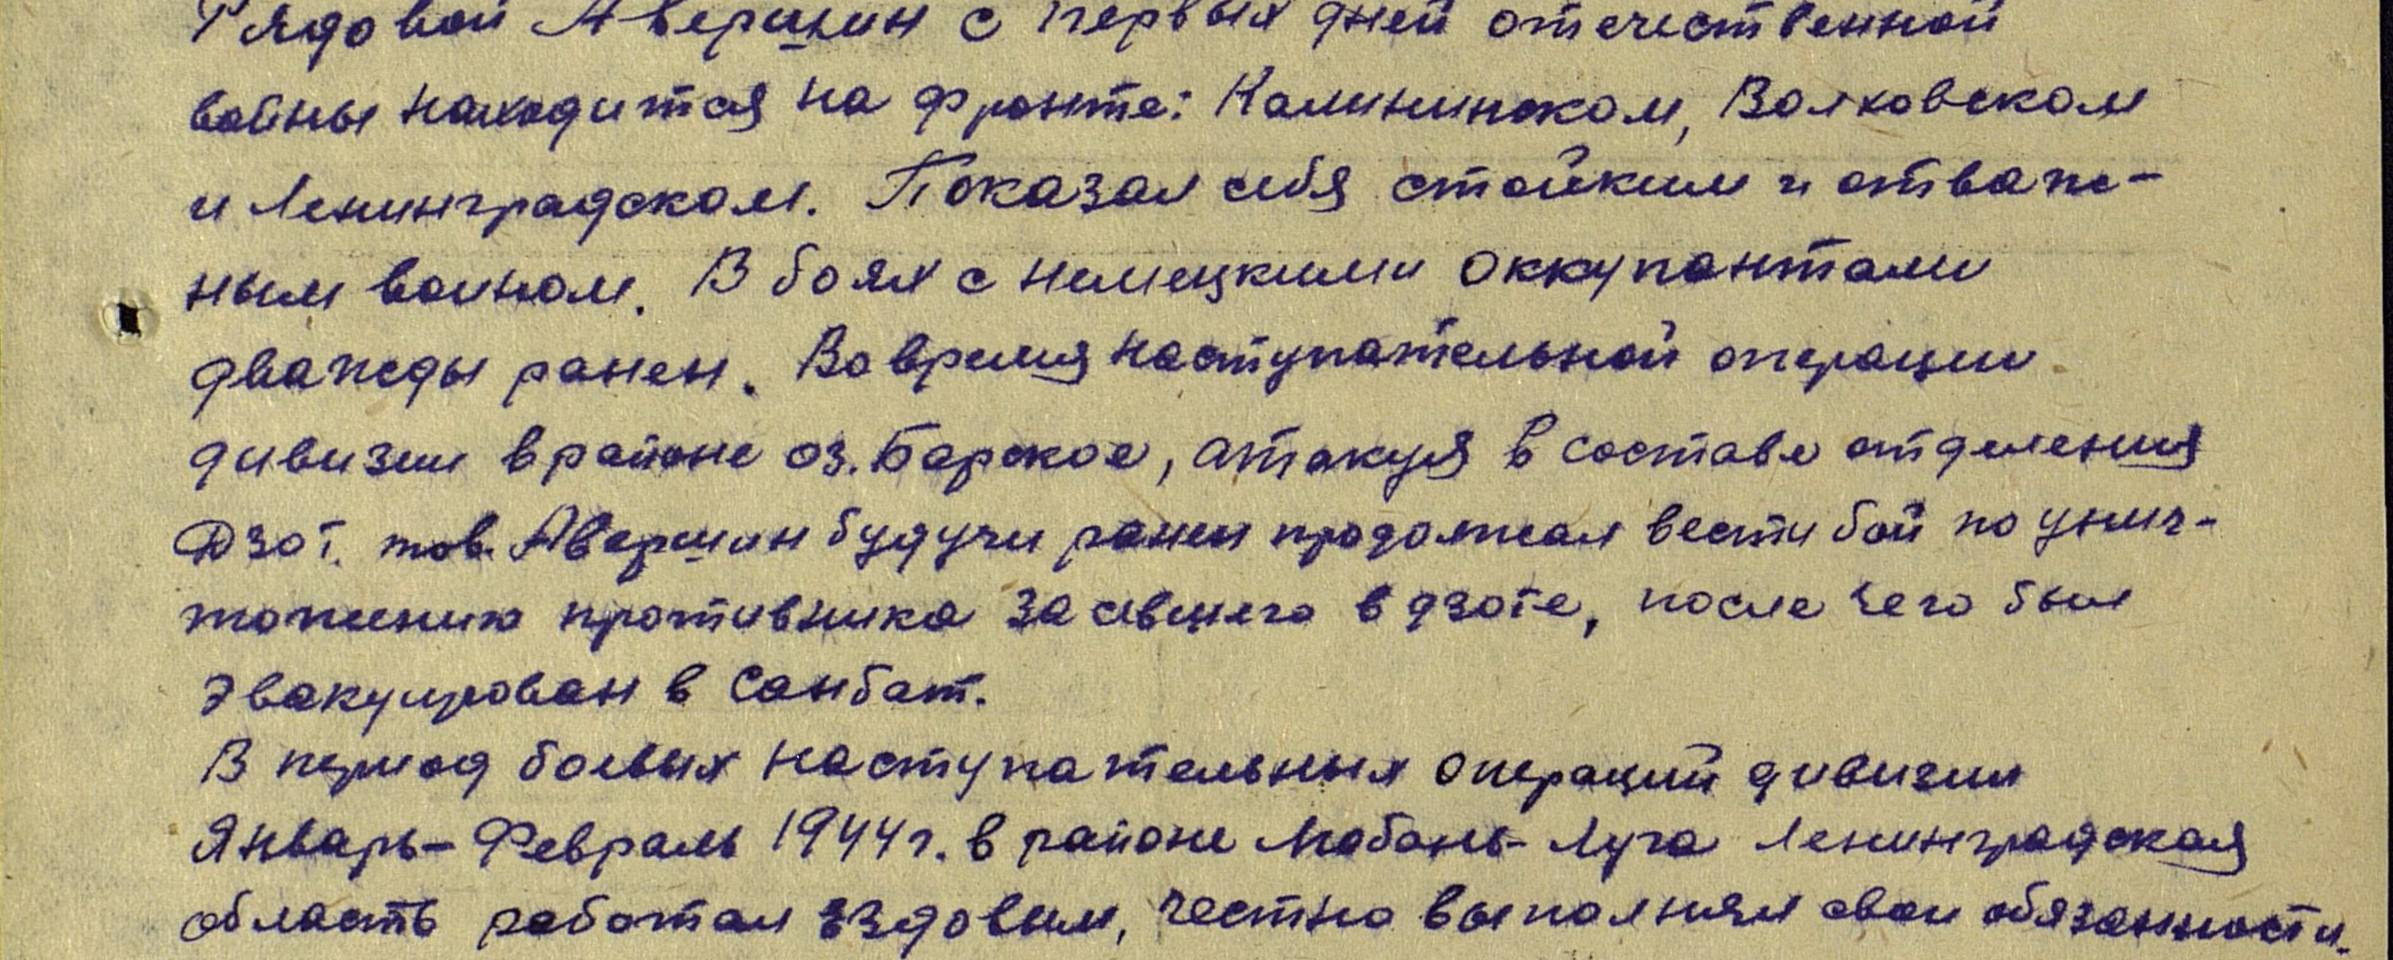 Рядовой Авершин с первых дней отечественной
войны находится на фронте: Калининском, Волховском
и Ленинградском. Показал себя стойким и отваж-
ным воином. В боях с немецкими оккупантами
дважды ранен. Во время наступательной операции
дивизии в районе оз. Барское, атакуя в составе отделения
ДЗОТ. тов. Авершин будучи ранен продолжал вести бой по унич-
тожению противника засевшего в дзоте, после чего был
эвакуирован в Санбат.
В период боевых наступательных операций дивизии
Январь-Февраль 1944г. в районе Любань-Луга Ленинградская
область работал ездовым, честно выполнял свои обязанности.